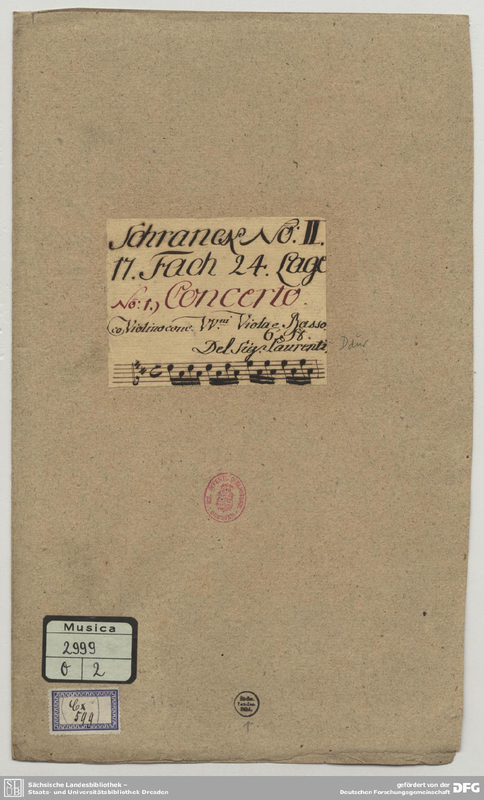 Schranck No: II.
17. Fach 24. Lage
No: 1.) Concerto.
co Violino conc. VV.ni Viola e Basso
6 St.
Del Sigr. Laurenti.
D dur
Musica
2999
O 2
Cx
599
Sächs.
Landes-
Bibl.
Sächsische Landesbibliothek –
Staats- und Universitätsbibliothek Dresden
gefördert von der
Deutschen Forschungsgemeinschaft
DFG